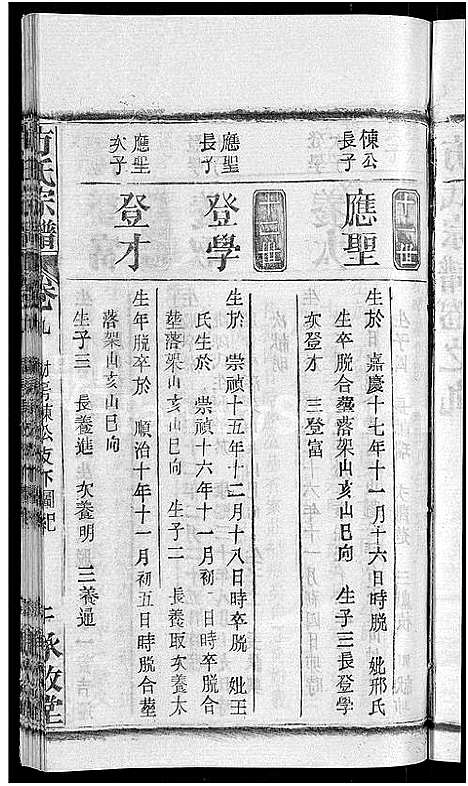 十一世
悚公
長子
應聖
生於 嘉慶十七年十一月十六日時脫 妣邢氏
生卒脫合塟落架山亥山巳向 生子三長登學
次登才 三登富
十二世
應聖
長子
登學
生於 崇禎十五年十二月十八日時卒脫 妣王
氏生於 崇禎十六年十一月初 日時卒脫合
塟落架山亥山巳向 生子二 長養取次養太
應聖
次子
登才
生年脫卒於 順治十年十一月初五日時脫合塟
落架山亥山巳向
生子三 長養進 次養明 三養通
方氏宗譜
卷之九
公支下圖紀
承啟堂